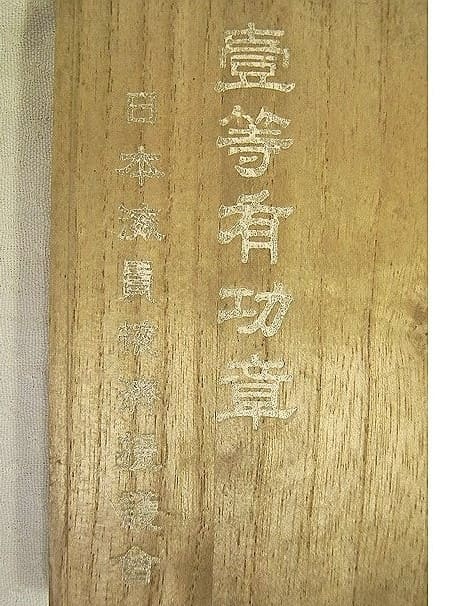 壹等有功章
日本海員掖濟援護會